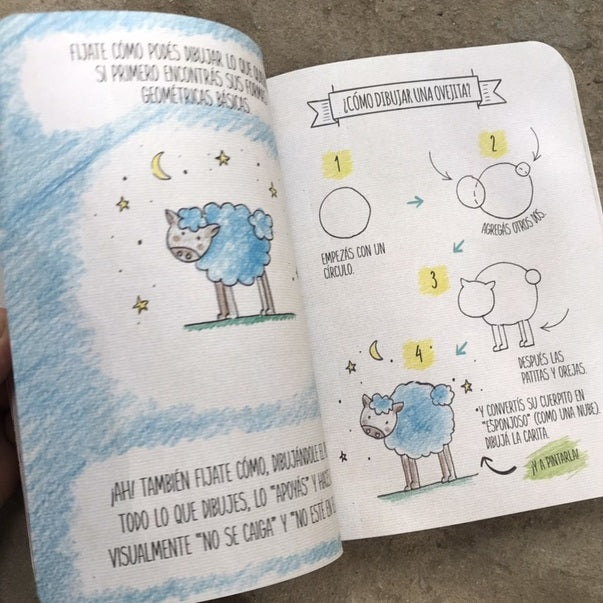 FIJATE CÓMO PODÉS DIBUJAR LO QUE
SI PRIMERO ENCONTRÁS SUS
GEOMÉTRICAS BÁSICAS
¡AH! TAMBIÉN FIJATE CÓMO, DIBUJÁNDOLE
TODO LO QUE DIBUJES, LO "APOYÁS" Y
VISUALMENTE "NO SE CAIGA" Y "NO ESTÉ
¿CÓMO DIBUJAR UNA OVEJITA?
1
EMPEZÁS CON UN
CÍRCULO.
2
AGREGÁS OTROS DOS.
3
DESPUÉS LAS
PATITAS Y OREJAS.
4
Y CONVERTÍS SU CUERPITO EN
"ESPONJOSO" (COMO UNA NUBE).
DIBUJÁ LA CARITA.
¡Y A PINTARLA!